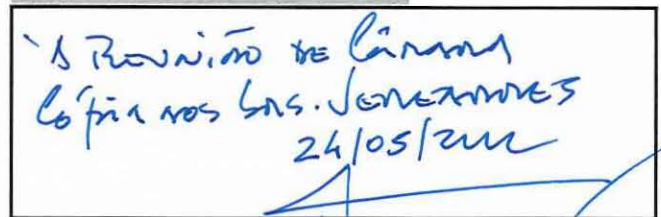 À REUNIÃO DE CÂMARA
CÓPIA AOS SRS. VEREADORES
24/05/2022